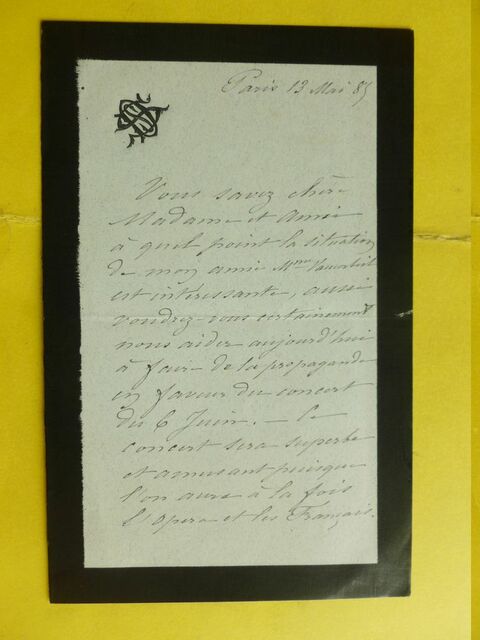 Paris 13 Mai 85
Vous savez chère
Madame et Amie
à quel point la situation
de mon amie Mme Vaucorbeil
est intéressante, aussi
voudrez-vous certainement
nous aider aujourd'hui
à faire de la propagande
en faveur du concert
du 6 Juin. — Le
concert sera superbe
et amusant puisque
l'on aura à la fois
l'Opera et les Français.